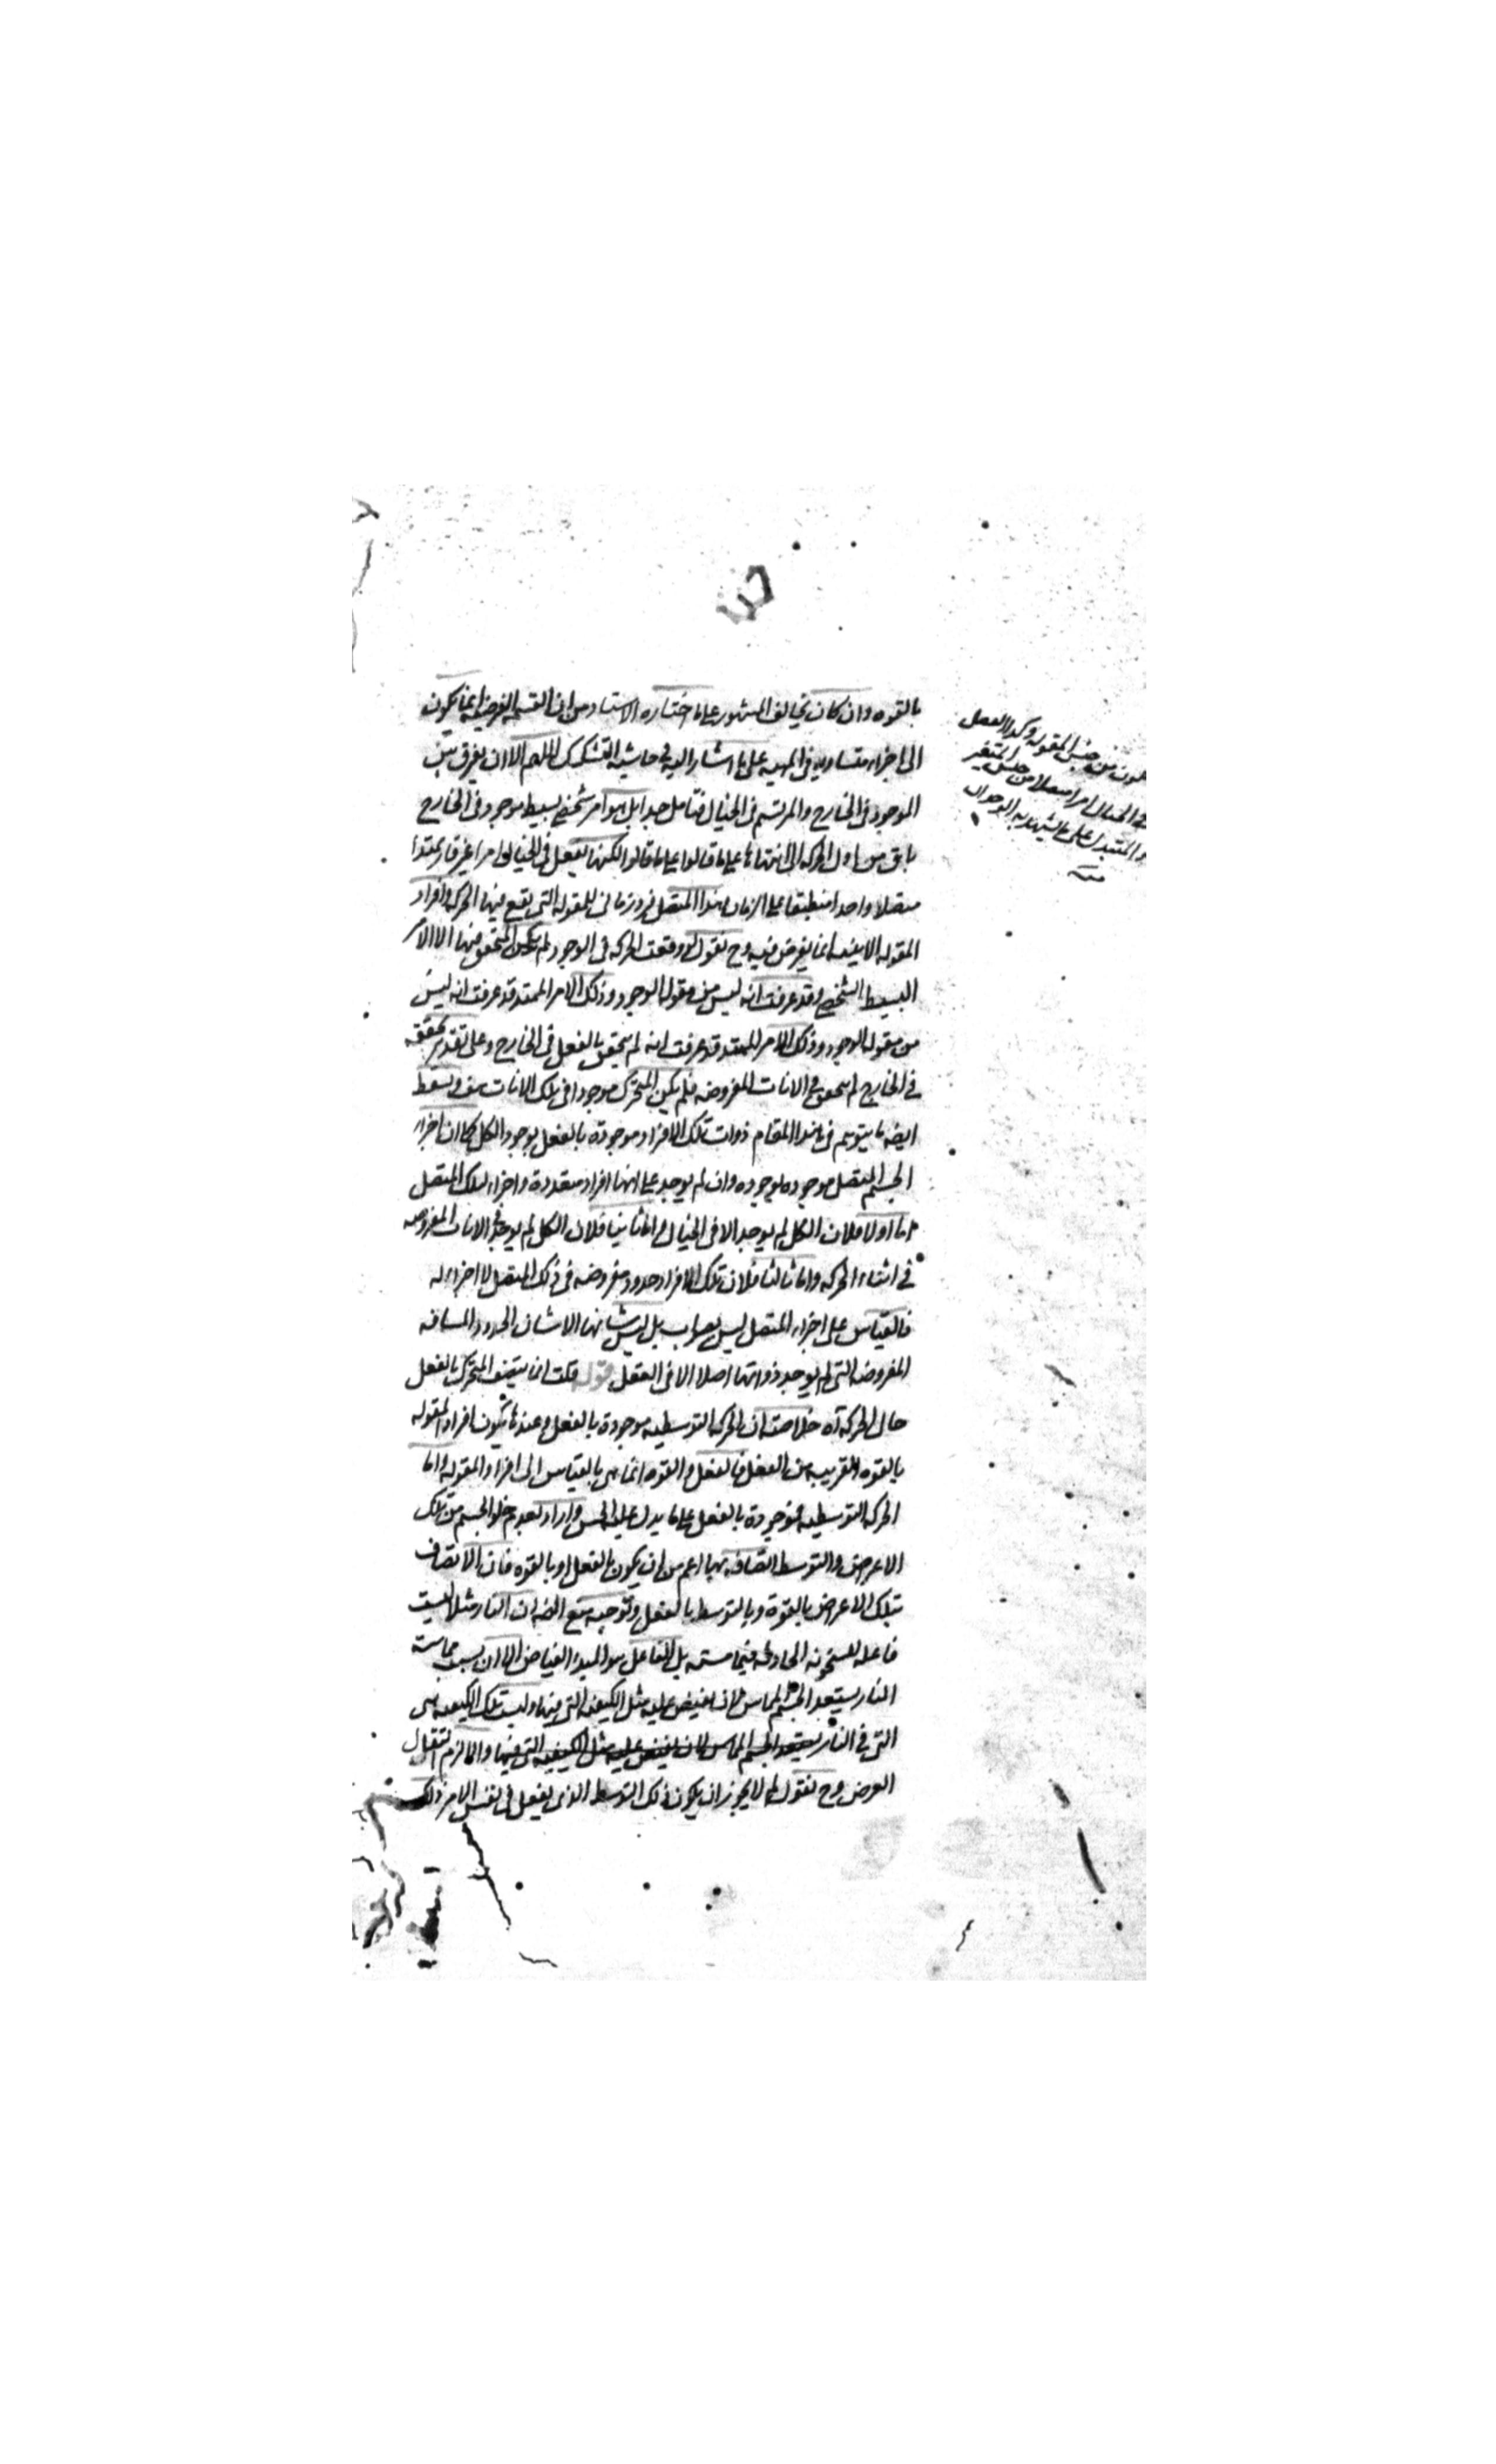 بالقوه وان كان يخالف المشهور على ما اختاره الاستاد من ان القسمه الفرضيه انما يكون
الى اجزاء متساويه فى المهيه على ما اشار اليه فى حاشيه التشكيك اللهم الا ان يفرق بين
الموجود فى الخارج والمرتسم فى الخيال فتامل جدا بل هو امر شخصى بسيط موجود فى الخارج
باق من اول الحركه الى انتهائها على ما قالوا لكنها يفعل فى الخيال امرا غير قار ممتدا
متصلا واحدا منطبقا على الزمان هذا المتصل فرد زمانى للمقوله التى تقع فيها الحركه وافراد
المقوله الانيه انما يفرض فيه وح نقول لو وقعت الحركه فى الوجود لم يكن المتحقق منها الا الامر
البسيط الشخصى وقد عرفت انه ليس من مقوله الوجود وذلك الامر الممتد قد عرفت انه ليس
من مقوله الوجود وذلك الامر الممتد قد عرفت انه لم يتحقق بالفعل فى الخارج وعلى تقدير تحققه
فى الخارج لم يتحقق فى الانات المفروضه فلم يكن المتحرك موجودا فى تلك الانات هف ويسقط
ايضه ما يتوهم فى هذا المقام ذوات تلك الافراد موجودة بالفعل بوجود الكل كما ان اجزاء
الجسم المتصل موجوده بوجوده وان لم يوجد على انها افراد متعددة واجزاء لذلك المتصل
اما اولا فلان الكل لم يوجد الا فى الخيال واما ثانيا فلان الكل لم يوجد فى الانات المفروضه
فى اثناء الحركه واما ثالثا فلان تلك الافراد حدود مفروضه فى ذلك المتصل لا اجزاء له
فالقياس على اجزاء المتصل ليس بصواب بل ليس شانها الا شان الحدود المسافه
المفروضه التى لم يوجد ذواتها اصلا الا فى العقل قوله قلت انما يتصف المتحرك بالفعل
حال الحركه آه خلاصته ان الحركه التوسطيه موجودة بالفعل وعندها يكون افراد المقوله
بالقوه القريبه من الفعل فالفعل والقوه انما هى بالقياس الى افراد المقوله واما
الحركه التوسطيه فموجودة بالفعل على ما يدل عليه الحس واراد بعدم خلو الجسم من تلك
الاعراض والتوسط اتصافه بها اعم من ان يكون بالفعل او بالقوه فان الاتصاف
بتلك الاعراض بالقوة وبالتوسط بالفعل وتوجيه ايضه ان النار مثلا ليست
فاعله للسخونه الحادثه فيما مسته بل الفاعل هو المبدأ الفياض الا ان بسبب مماسته
النار يستعد الجسم المماس لان يفيض عليه مثل الكيفيه التى فيها وليست تلك الكيفيه هى
التى فى النار والا لزم انتقال
العرض وح نقول لم لا يجوز ان يكون ذلك التوسط الذى يفعل فى نفس الامر ذلك
من جنس المقوله وكذا الفصل
فى الخيال امرا متصلا من جنس المتغير
والمتبدل على ما يشهد به الوجدان
منه